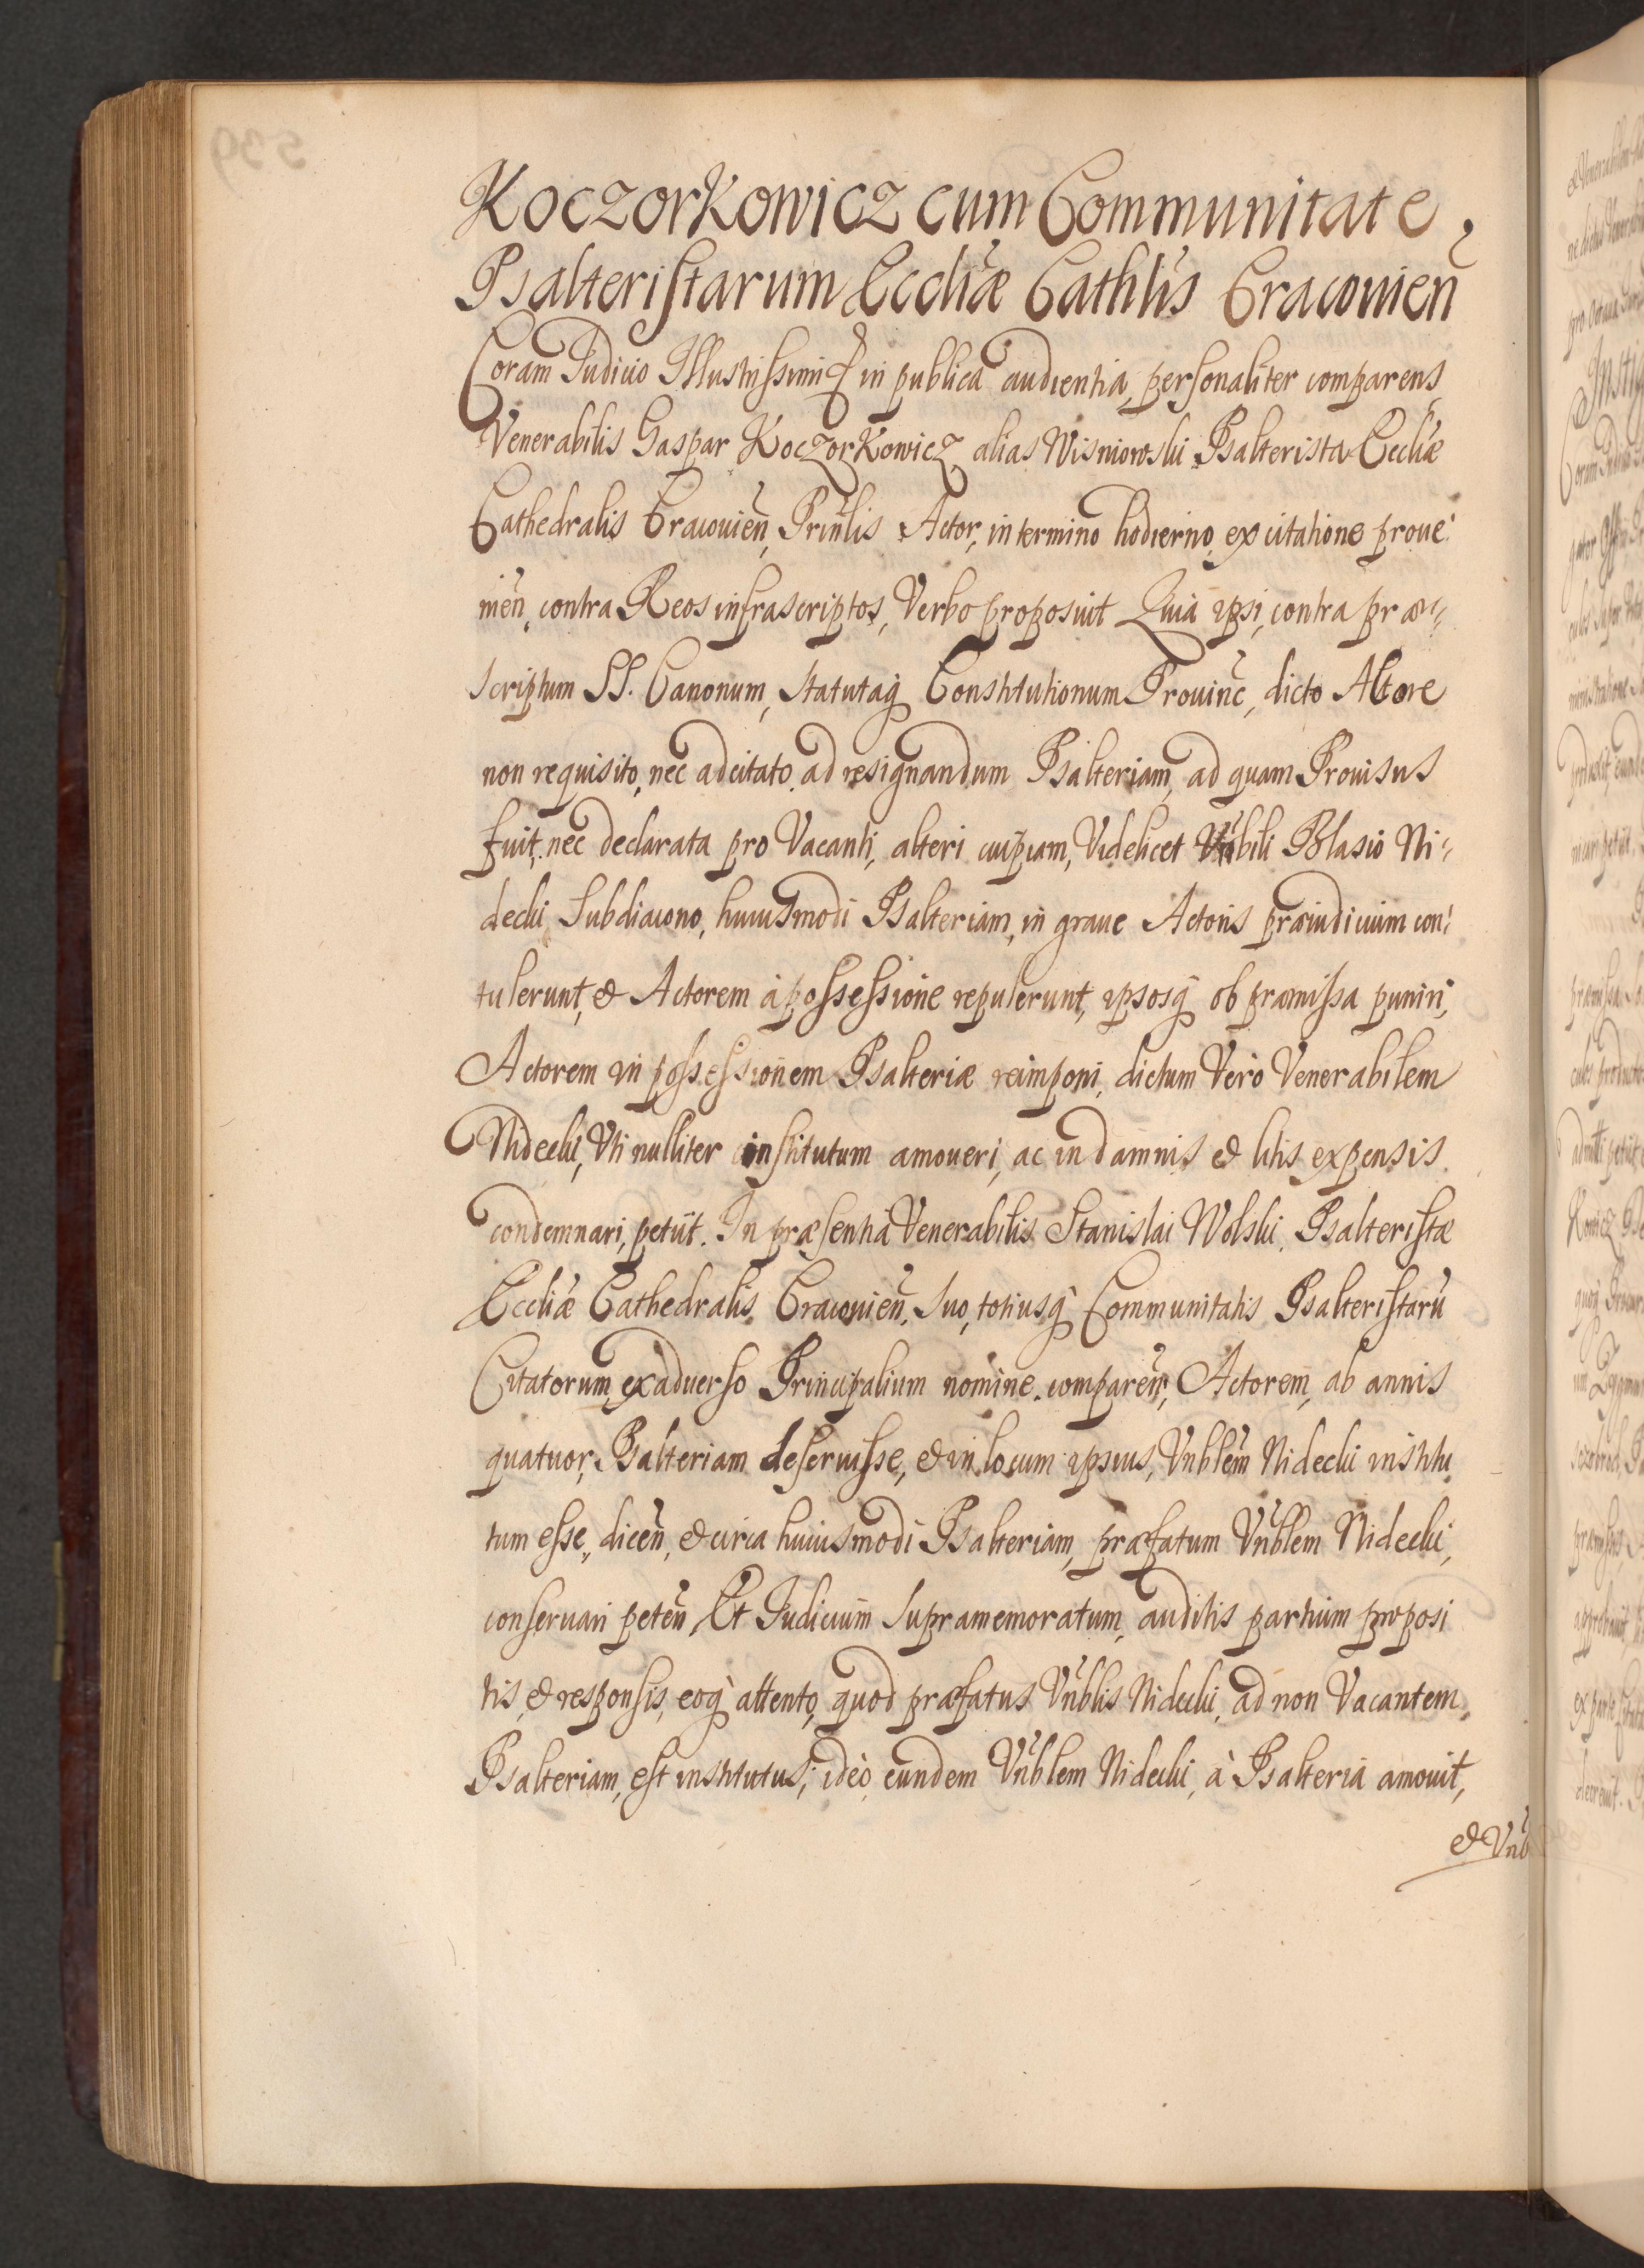 KoczorKowicz cum Communitate
Psalteristarum Eccliæ Cathlis Cracouien
Coram Judicio Illustrissimi & in publica audientia, personaliter comparens
Venerabilis Gaspar KoczorKowicz alias Wisniowski Psalterista Eccliæ
Cathedralis Cracouien, Prinlis Actor, in termino hodierno, ex citatione proue
nien, contra Reos infrascriptos, Verbo proposuit Quia ipsi, contra præ
scriptum SS. Canonum, statutaq Constitutionum Prouinc, dicto Actore
non requisito, nec adcitato ad resignandum Psalteriam, ad quam Prouisus
fuit, nec declarata pro Vacanti, alteri cuipiam, Videlicet Vnbili Blasio Ni
decki Subdiacono, huiusmodi Psalteriam, in graue Actoris præiudicium con
tulerunt, & Actorem à possessione repulerunt, ipsosq ob præmissa puniri,
Actorem in possessionem Psalteriæ reimponi, dictum Vero Venerabilem
Nidecki, Vti nulliter institutum amoueri, ac in damnis & litis expensis
condemnari, petiit. In præsentia Venerabilis Stanislai Wolski, Psalteristæ
Eccliæ Cathedralis Cracouien, suo, totiusq Communitatis Psalteristarū
Citatorum, ex aduerso Principalium nomine comparen, Actorem, ab annis
quatuor, Psalteriam deseruisse, & in locum ipsius, Vnblem Nidecki institu
tum esse, dicen, & circa huiusmodi Psalteriam, præfatum Vnblem Nidecki,
conseruari peten, Et Judicium supramemoratum, auditis partium proposi
tis, & responsis, eoq attento, quod præfatus Vnblis Nidecki, ad non Vacantem
Psalteriam, est institutus, ideò, eundem Vnblem Nidecki, à Psalteria amouit,
& Vnb